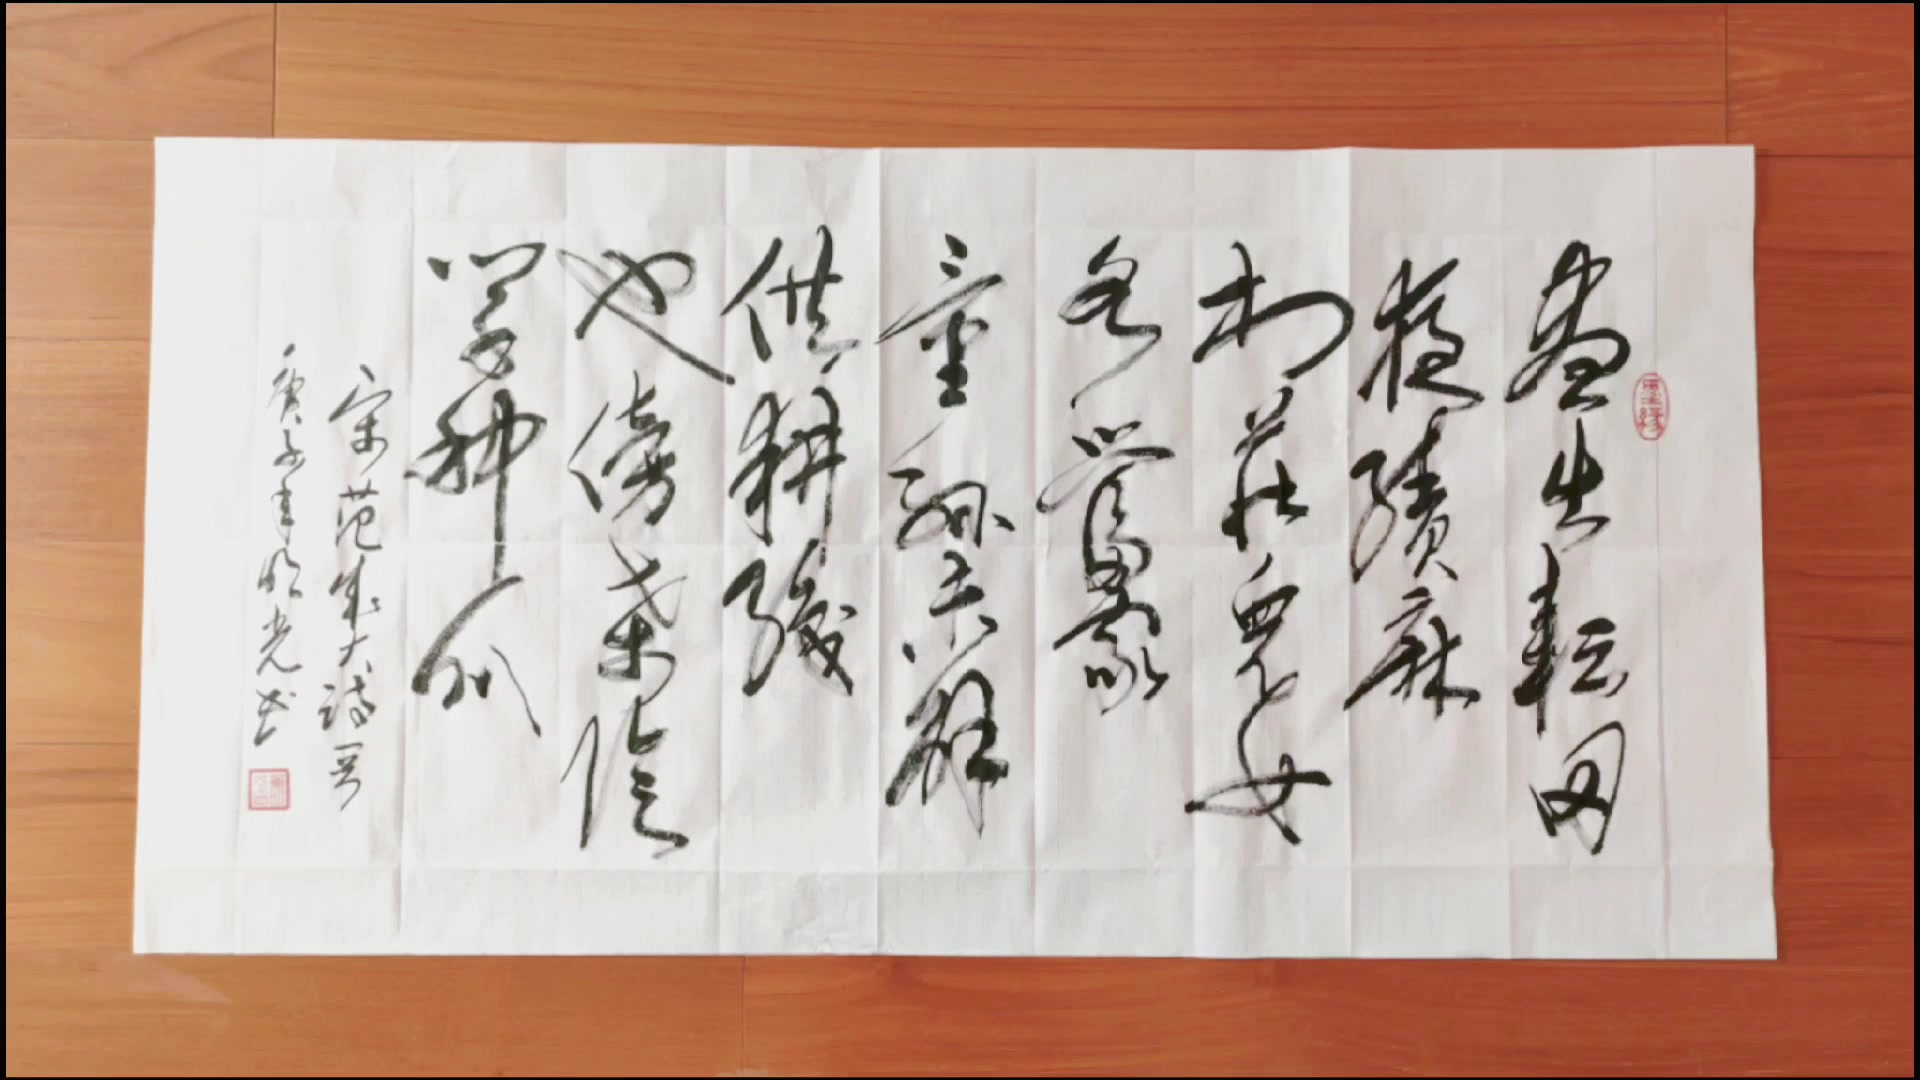 墨缘
晝出耘田
夜績麻
村莊兒女
各當家
童孫未解
供耕織
也傍桑陰
學种瓜
宋范成大詩一首
庚子年明光书